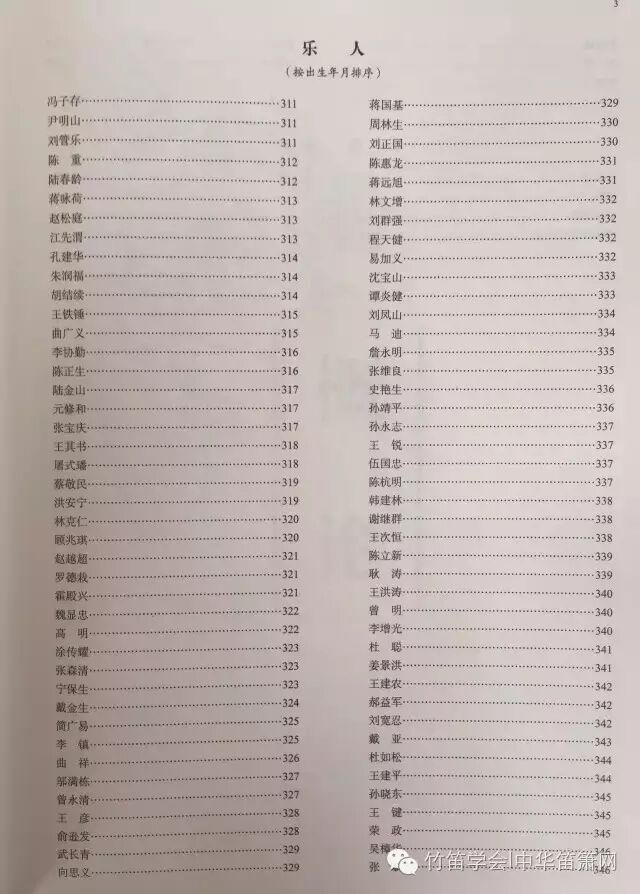 3
乐 人
(按出生年月排序)
冯子存 311
尹明山 311
刘管乐 311
陈 重 312
陆春龄 312
蒋咏荷 313
赵松庭 313
江先渭 313
孔建华 314
朱润福 314
胡结续 314
王铁锤 315
曲广义 315
李协勤 316
陈正生 316
陆金山 317
元修和 317
张宝庆 317
王其书 318
屠式璠 318
蔡敬民 319
洪安宁 319
林克仁 320
顾兆琪 320
赵越超 321
罗德栽 321
霍殿兴 321
魏显忠 322
高 明 322
涂传耀 323
张森清 323
宁保生 323
戴金生 324
简广易 325
李 镇 325
曲 祥 326
邬满栋 327
曾永清 327
王 彦 328
俞逊发 328
武长青 329
向思义 329
蒋国基 329
周林生 330
刘正国 330
陈惠龙 331
蒋远旭 331
林文增 332
刘群强 332
程天健 332
易加义 332
沈宝山 333
谭炎健 333
刘凤山 334
马 迪 334
詹永明 335
张维良 335
史艳生 336
孙靖平 336
孙永志 337
王 锐 337
伍国忠 337
陈杭明 337
韩建林 338
谢继群 338
王次恒 338
陈立新 339
耿 涛 339
王洪涛 340
曾 明 340
李增光 340
杜 聪 341
姜景洪 341
王建农 342
郝益军 342
刘宽忍 342
戴 亚 343
杜如松 344
王建平 344
孙晓东 345
王 键 345
荣 政 345
吴樟华 346
张 346
竹笛学会|中华笛箫网